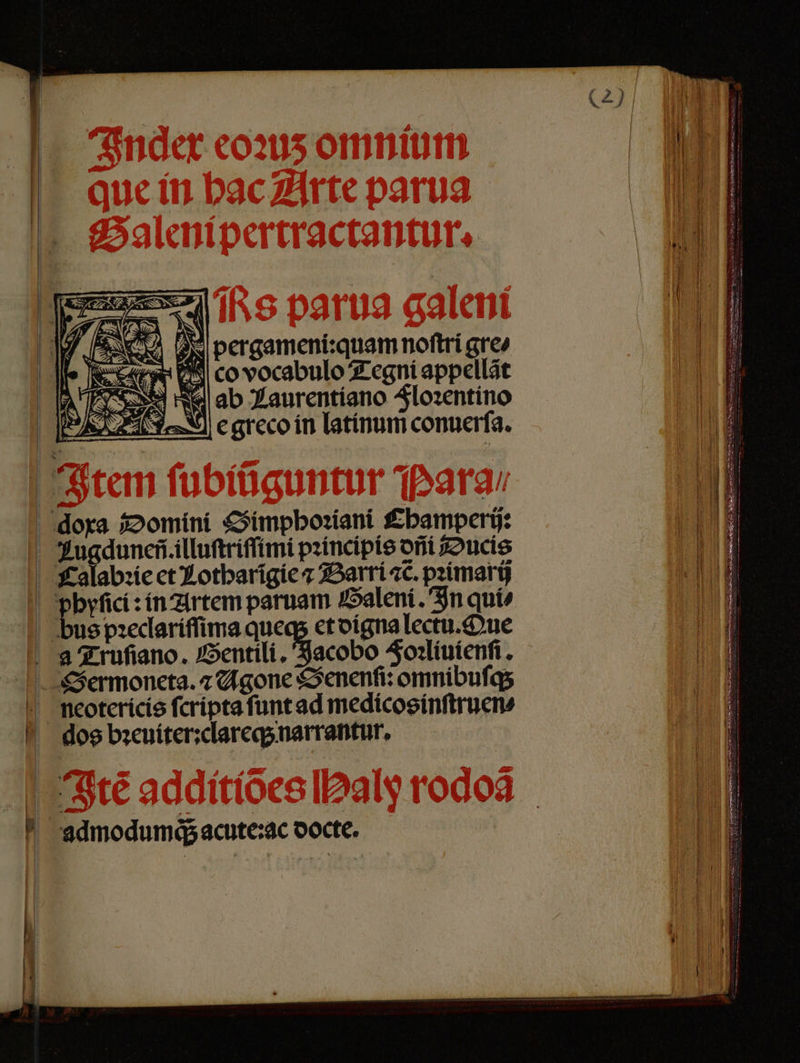 (2)
Index eoruʒ omnium
que in hac Arte parua
Galeni pertractantur.
ARs parua galeni
pergameni: quam noſtri gre⸗
co vocabulo Tegni appellāt
ab Laurentiano Florentino
e greco in latinum conuerſa.
Item ſubiūguntur Para⸗
doxa Domini Simphoriani Champerij:
Lugduneñ. illuſtriſſimi principis dñi Ducis
Calabrie et Lotharigie ⁊ Barri ⁊c̄. primarij
phyſici: in Artem paruam Galeni. In qui⸗
bus preclariſſima queqꝫ et digna lectu. Que
a Truſiano. Gentili. Jacobo Forliuienſi.
Sermoneta. ⁊ Agone Senenſi: omnibuſqꝫ
neotericis ſcripta ſunt ad medicos inſtruen⸗
dos breuiter: clareqꝫ narrantur.
Itē additiōes Haly rodoā
admodumqꝫ acute: ac docte.